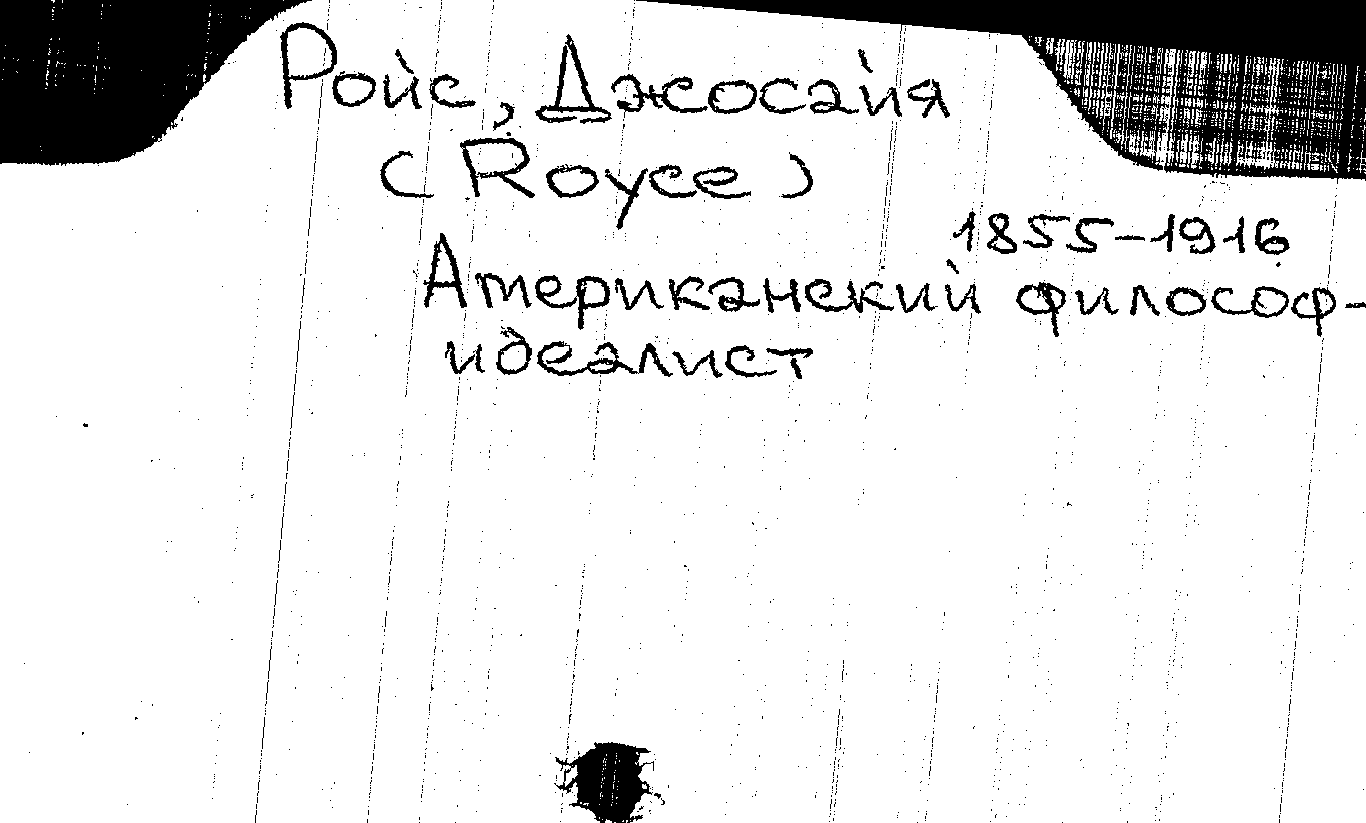 Ройс, Джосайя
(Royce)
1855-1916
Американский философ-
идеалист